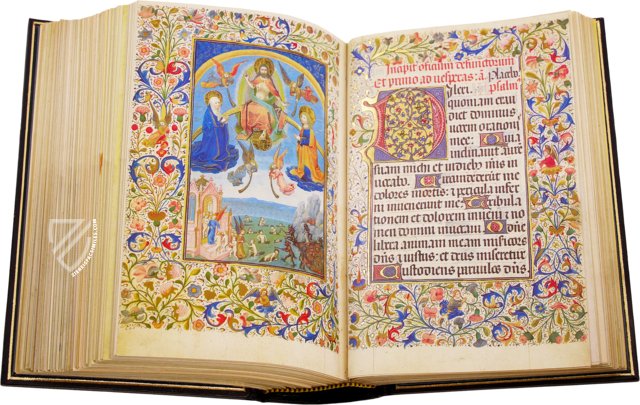 Incipit officium defunctorum
Et primo ad vesperas: a. Placebo.
psalm.
Dilexi
quoniam exau
diet dominus
vocem orationis
mee: Quia
inclinavit aure
suam michi et in diebus meis in
vocabo. Circumdederunt me
dolores mortis: et pericula infer
ni invenerunt me: Tribula
tionem et dolorem inveni et no
men domini invocavi: O dne
libera animam meam misericors
dns et iustus: et deus nr miseretur
Custodiens parvulos dns
ZIEREIS FACSIMILES.COM